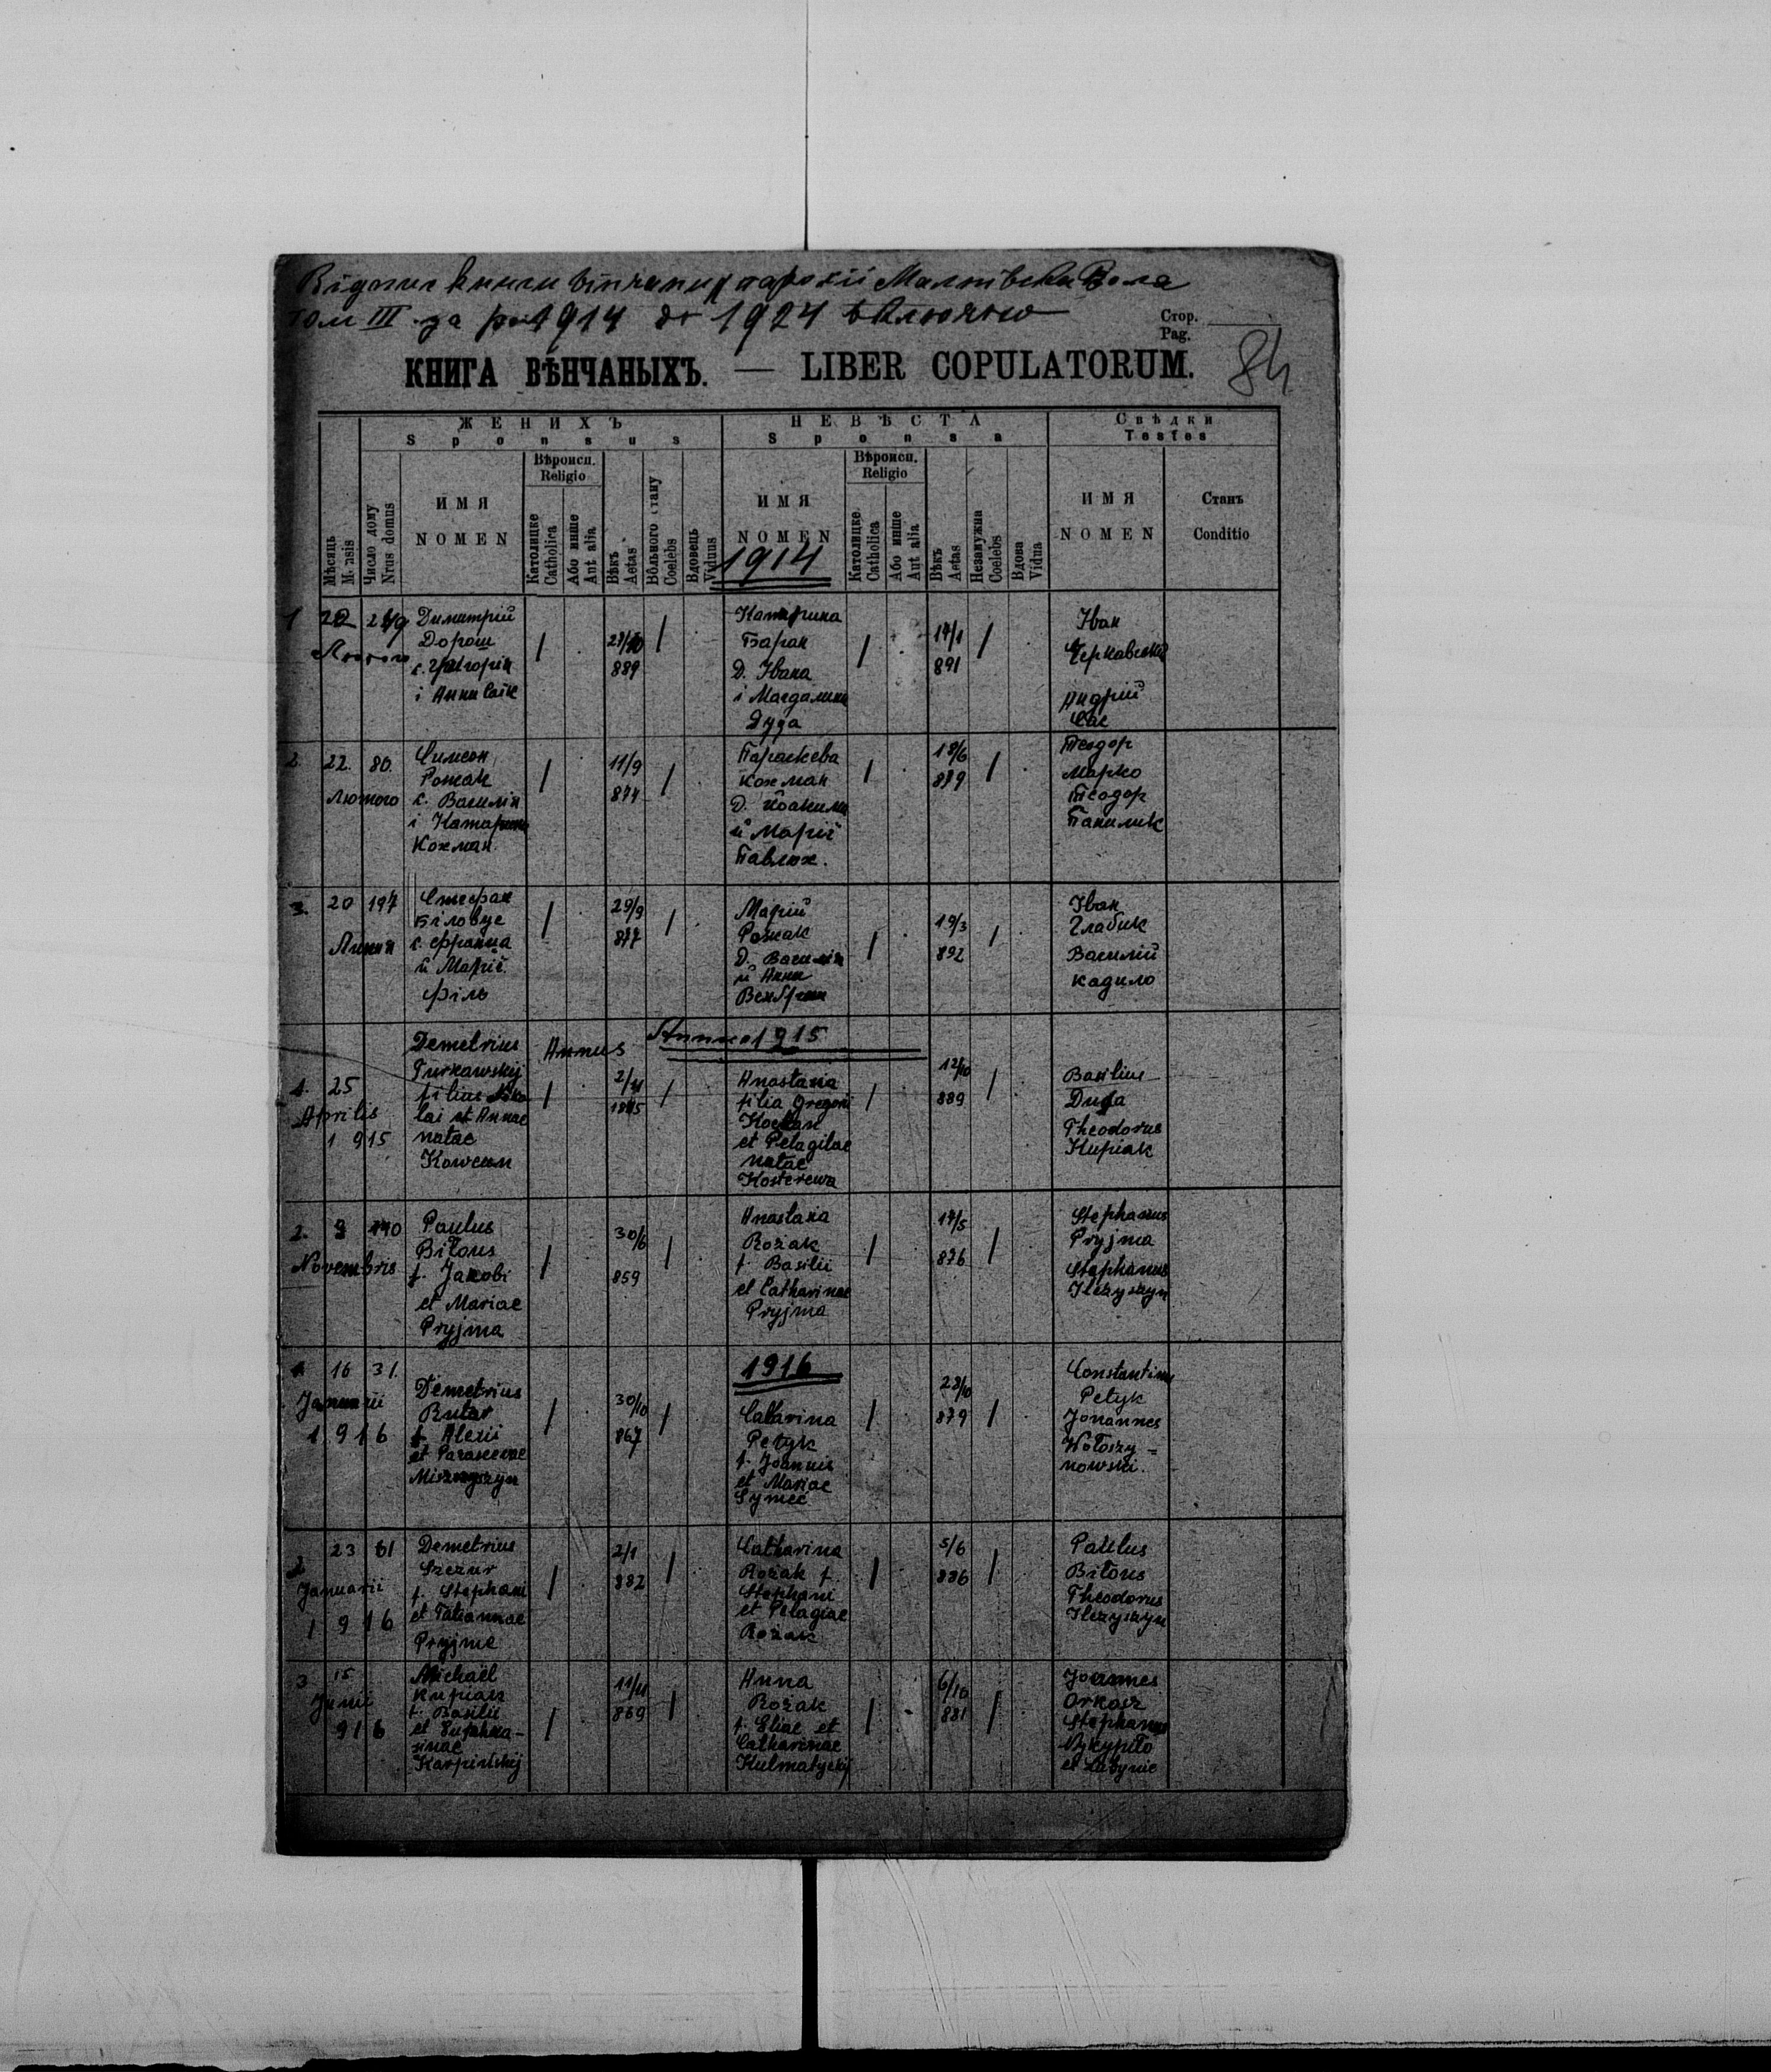 Відопис книги вінчаних парохії Малтівська Воля
том III за рік 1914 до 1924 включно
Стор.
Pag.
84
КНИГА ВѢНЧАНЫХЪ. — LIBER COPULATORUM.
ЖЕНИХЪ
Sponsus
НЕВѢСТА
Sponsa
Свѣдки
Testes
Мѣсяць
Mensis
Число дому
Nrus domus
ИМЯ
NOMEN
Вѣроисп.
Religio
Католицке
Catholica
Або инше
Aut alia
Вѣкъ
Aetas
Вôльного стану
Coelebs
Вдовець
Viduus
ИМЯ
NOMEN
Вѣроисп.
Religio
Католицке
Catholica
Або инше
Aut alia
Вѣкъ
Aetas
Незамужна
Coelebs
Вдова
Vidua
ИМЯ
NOMEN
Станъ
Conditio
1914
1 22
Димитрій
Дорош
с. Григорія
і Анни Саїк
889
Катарина
Баран
Д. Івана
і Магдалини
Дуда
14/1
891
Іван
Черкавський
Андрій
Сас
2. 22. 80.
Лютого
Симеон
Рожак
с. Василія
і Катарини
Кохман
11/9
874
Параскева
Кохман
Д. Йоакима
й Марії
Павлюх.
18/6
879
Теодор
Марко
Теодор
Панилик
3. 20 197
Липня
Стефан
Біловус
с. Франца
й Марії
Філь
29/9
877
Марій
Рожак
Д. Василія
й Анни
Венгрин
19/3
892
Іван
Глабик
Василій
Кадило
Annus
Annus 1915
1. 25
Aprilis
1915
Demetrius
Turkawskij
filius Niko
lai et Annae
natae
Kowcun
2/11
Anastasia
filia Gregorii
Kochan
et Pelagiae
natae
Kosterewa
12/10
889
Basilius
Duda
Theodorus
Kupiak
2. 9 140
Novembris
Paulus
Biłous
f. Jakobi
et Mariae
Pryjma
30/6
859
Anastasia
Rożak
f. Basilii
et Catharinae
Pryjma
14/5
876
Stephanus
Pryjma
Stephanus
Ilczyszyn
1916
1 16 31.
Januarii
1916
Demetrius
Butar
f. Alexii
et Parascevae
Misznyszyn
30/10
867
Catarina
Petyk
f. Joannis
et Mariae
Symeć
28/10
879
Constantinus
Petyk
Johannes
Wołoszy-
nowski.
2 23 61
Januarii
1916
Demetrius
Szczur
f. Stephani
et Tatiannae
Pryjma
2/1
882
Catharina
Rożak f.
Stephani
et Pelagiae
Rożak
5/6
886
Paulus
Biłous
Theodorus
Ilczyszyn
3 15
Junii
916
Michaël
Kupiak
f. Basilii
et Euphro-
sinae
Karpinskij
11/11
869
Anna
Rożak
f. Eliae et
Catharinae
Kulmatycky
6/10
881
Joannes
Stephanus
Nykypiło